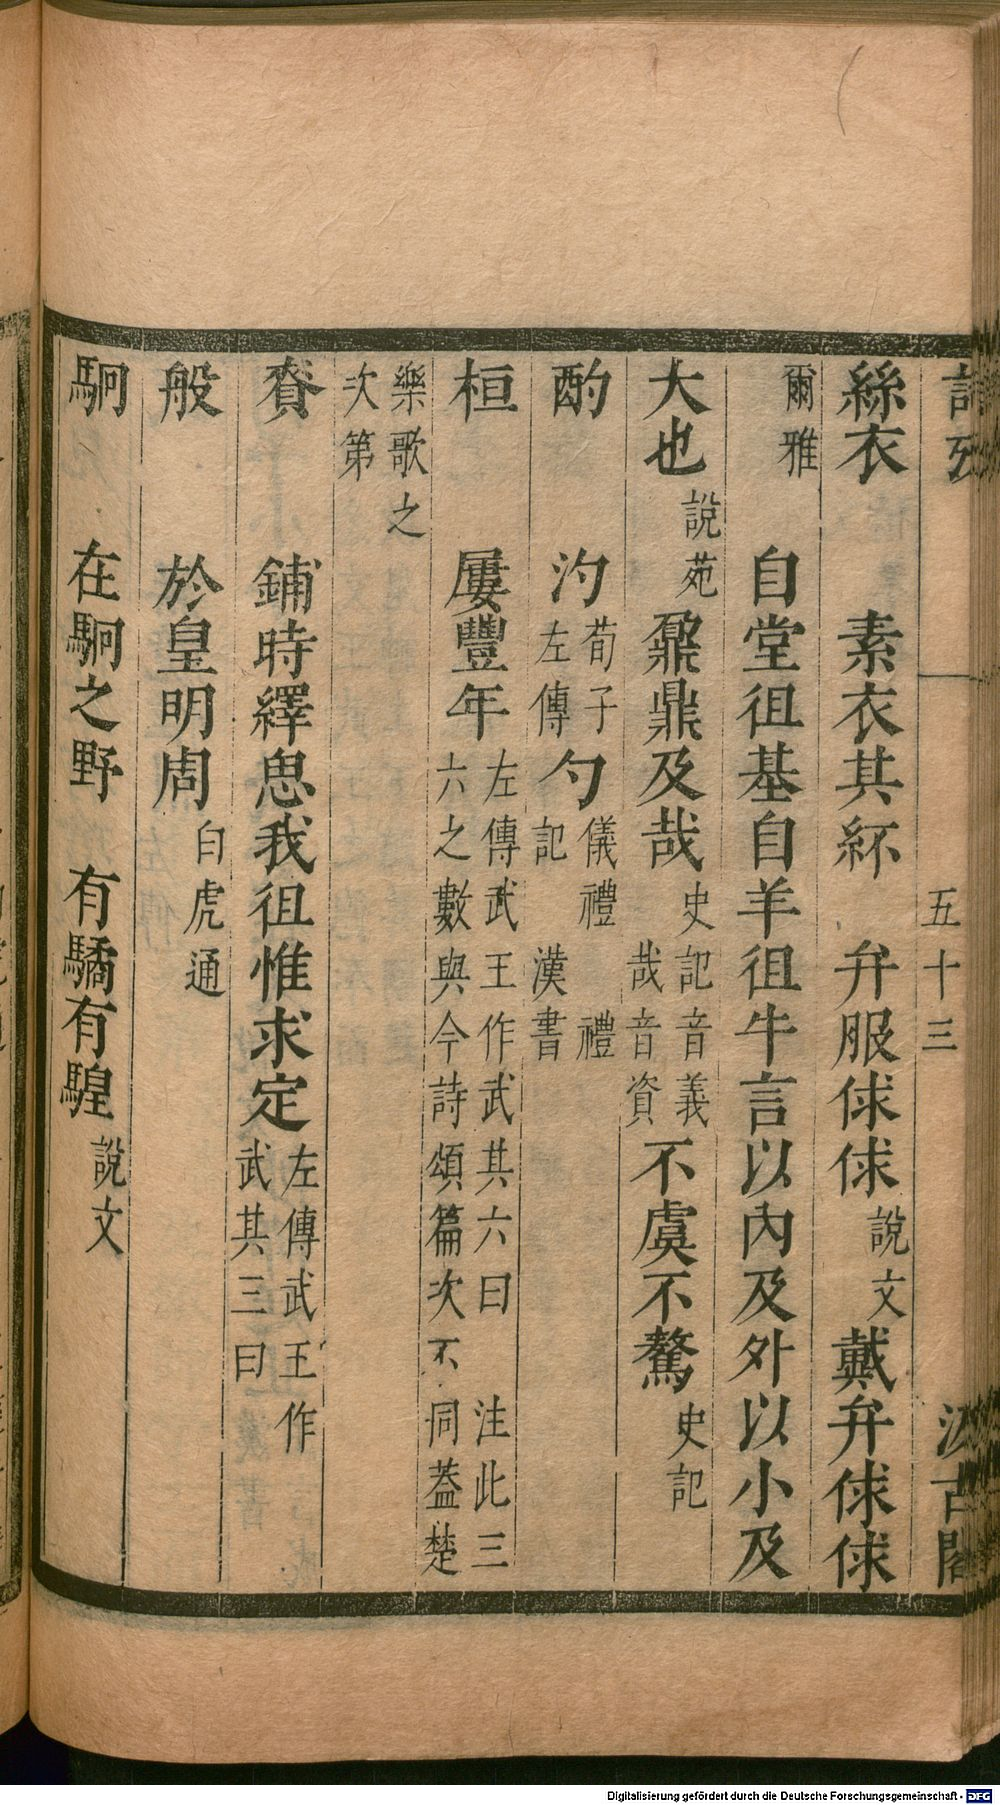 詩攷 五十三 汲古閣
絲衣 素衣其紑 弁服俅俅說文戴弁俅俅
爾雅 自堂徂基自羊徂牛言以內及外以小及
大也說苑鼐鼎及哉史記音義哉音資不虞不驁史記
酌 汋荀子左傳勺儀禮 禮記 漢書
桓 屢豐年左傳武王作武其六曰 注此三六之數與今詩頌篇次不同葢楚
樂歌之次第
賚 鋪時繹思我徂惟求定左傳武王作武其三曰
般 於皇明周白虎通
駉 在駉之野 有驕有騜說文
Digitalisierung gefördert durch die Deutsche Forschungsgemeinschaft - DFG